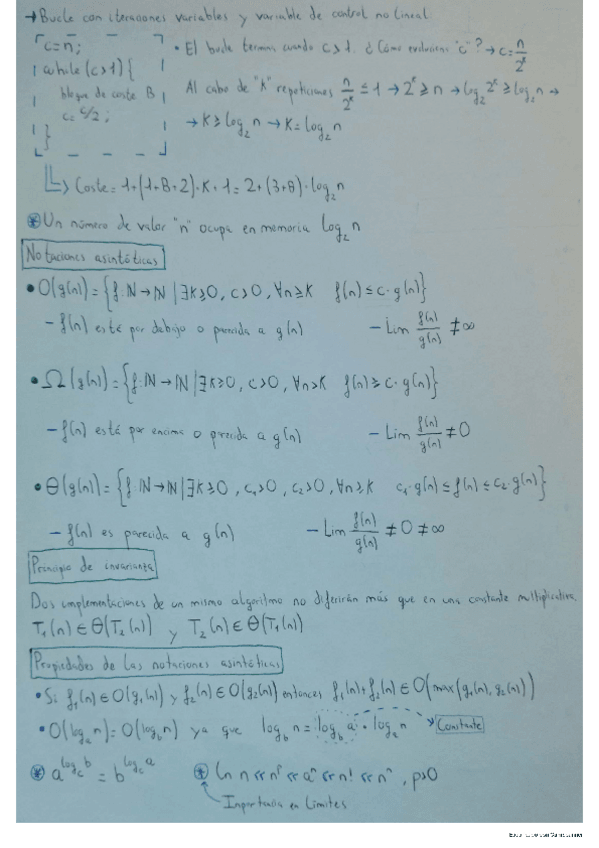 → Bucle con iteraciones variables y variable de control no lineal.
c=n;
while (c>1) {
bloque de coste B
c= c/2;
}
• El bucle termina cuando c>1. ¿Cómo evoluciona "c"? → c= n/2^k
Al cabo de "k" repeticiones n/2^k ≤ 1 → 2^k ≥ n → log₂ 2^k ≥ log₂ n →
→ K ≥ log₂ n → K= log₂ n
↳ Coste = 1+(1+B+2)·K+1 = 2+(3+B)·log₂ n
⊛ Un número de valor "n" ocupa en memoria log₂ n
Notaciones asintóticas
• O(g(n)) = {f:ℕ→ℕ | ∃K≥0, c>0, ∀n≥K f(n) ≤ c·g(n)}
- f(n) esté por debajo o parecida a g(n) - Lim f(n)/g(n) ≠ ∞
• Ω(g(n)) = {f:ℕ→ℕ | ∃K≥0, c>0, ∀n>K f(n) ≥ c·g(n)}
- f(n) está por encima o parecida a g(n) - Lim f(n)/g(n) ≠ 0
• Θ(g(n)) = {f:ℕ→ℕ | ∃K≥0, c₁>0, c₂>0, ∀n≥K c₁·g(n) ≤ f(n) ≤ c₂·g(n)}
- f(n) es parecida a g(n) - Lim f(n)/g(n) ≠ 0 ≠ ∞
Principio de invarianza
Dos implementaciones de un mismo algoritmo no diferirán más que en una constante multiplicativa.
T₁(n) ∈ Θ(T₂(n)) y T₂(n) ∈ Θ(T₁(n))
Propiedades de las notaciones asintóticas
• Si f₁(n) ∈ O(g₁(n)) y f₂(n) ∈ O(g₂(n)) entonces f₁(n)+f₂(n) ∈ O(max(g₁(n), g₂(n)))
• O(logₐ n) = O(log_b n) ya que log_b n = log_b a · logₐ n → Constante
⊛ a^(log_c b) = b^(log_c a) ⊛ ln n << n^p << a^n << n! << n^n, p>0
Importancia en Límites